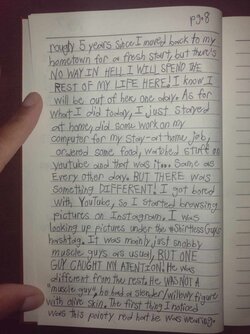 pg.8
roughly 5 years since I moved back to my
hometown for a fresh start, but there's
NO WAY IN HELL I WILL SPEND THE
REST OF MY LIFE HERE! I know I
will be out of here one day. As for
what I did today, I just stayed
at home, did some work on my
computer for my stay-at home job,
ordered some food, watched stuff on
youtube and that was it... Same as
Every other day. BUT THERE WAS
something DIFFERENT! I got bored
with YouTube, so I started browsing
pictures on Instagram. I was
looking up pictures under the #ShirtlessGuys
hashtag. It was mainly just snobby
muscle guys as usual, BUT ONE
GUY CAUGHT MY ATENTION. He was
different from the rest. HE WAS NOT A
"muscle guy", he had a slender/willowy figure
with olive skin. The first thing I noticed
was this pointy red hat he was wearing.